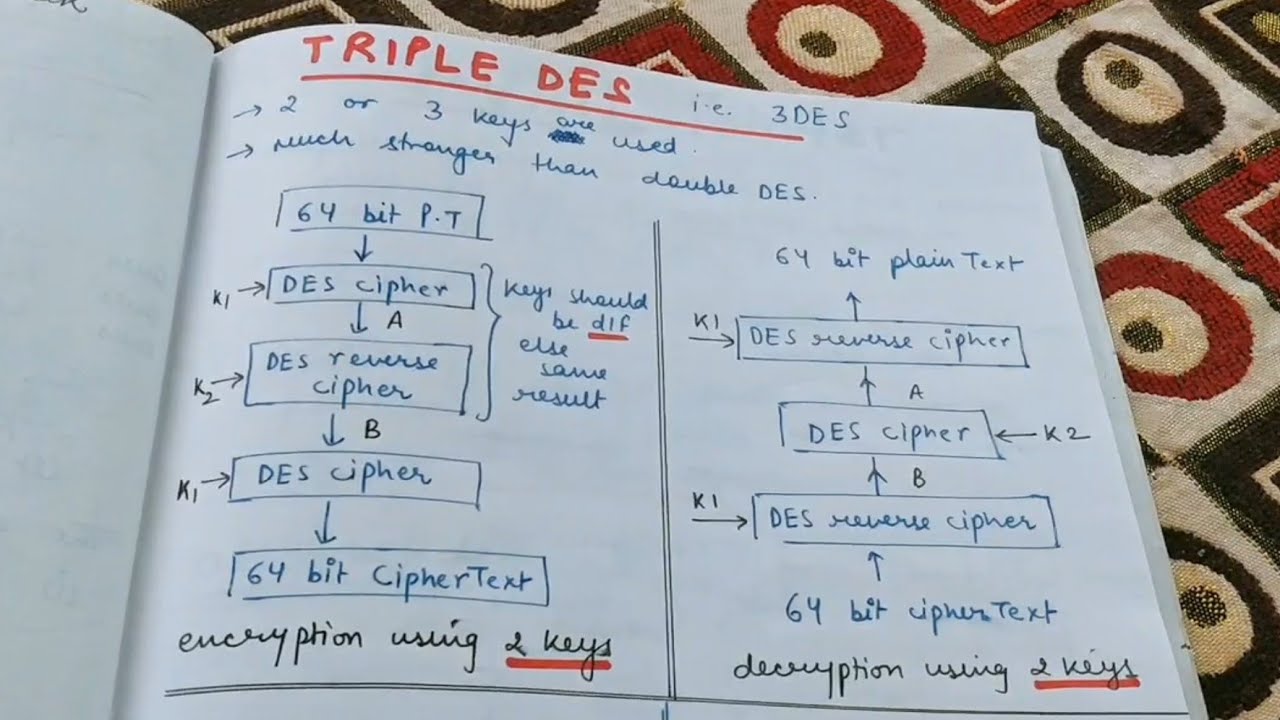 TRIPLE DES i.e. 3DES
→ 2 or 3 keys are used.
→ much stronger than double DES.
64 bit P.T
K1 → DES cipher
A
K2 → DES reverse
cipher
B
K1 → DES cipher
64 bit CipherText
encryption using 2 keys
keys should
be dif
else
same
result
64 bit plainText
K1 → DES reverse cipher
A
DES cipher ← K2
B
K1 → DES reverse cipher
64 bit cipherText
decryption using 2 keys